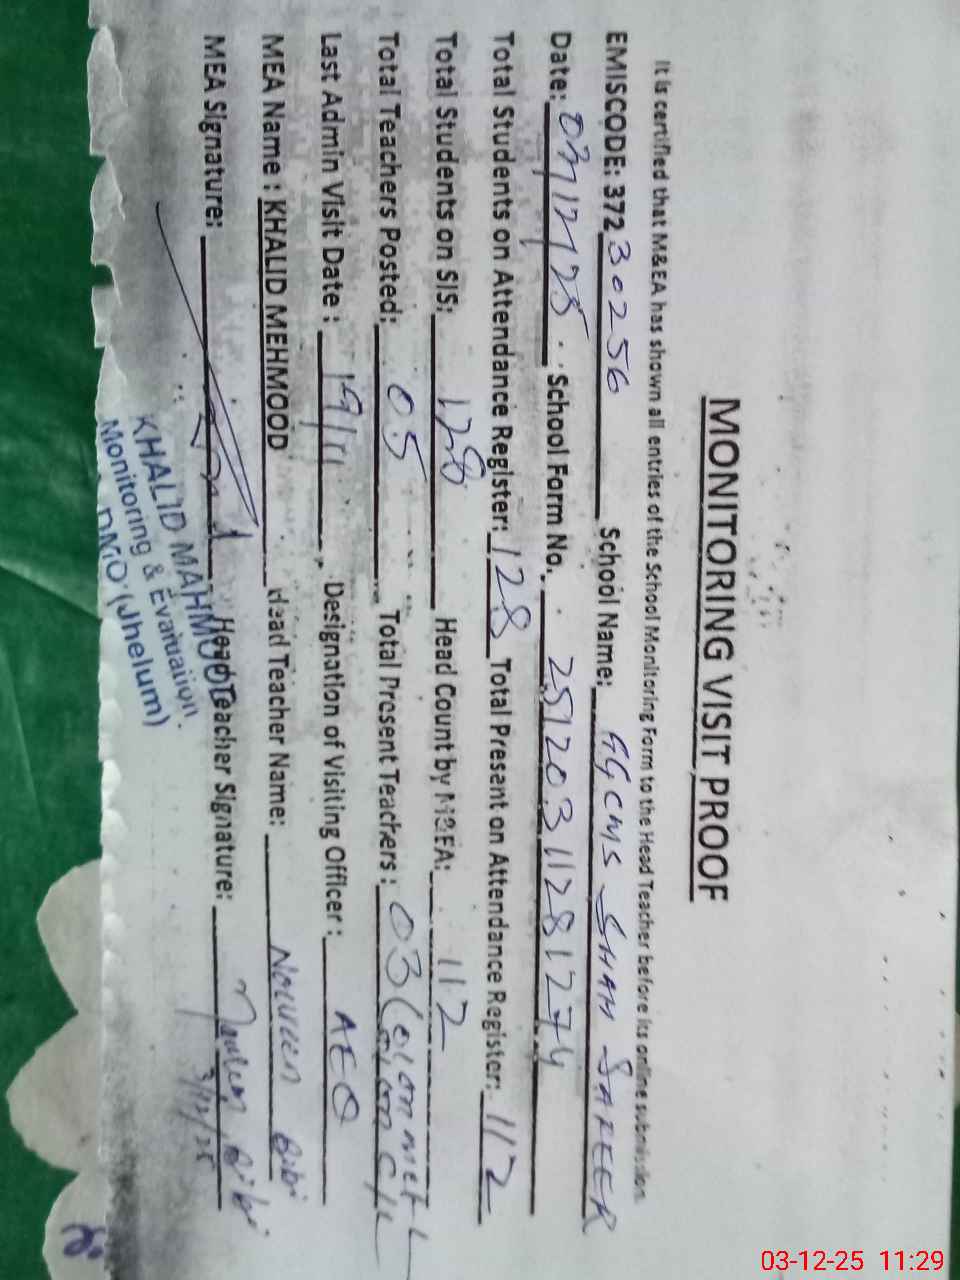 MONITORING VISIT PROOF
It is certified that M&EA has shown all entries of the School Monitoring Form to the Head Teacher before its online submission
EMISCODE: 37230256 School Name: GGCMS SHAH SAFEER
Date: 03/12/25 School Form No. 25120311281274
Total Students on Attendance Register: 128 Total Present on Attendance Register: 112
Total Students on SIS: 128 Head Count by M&EA: 112
Total Teachers Posted: 05 Total Present Teachers: 03 (01 on
Last Admin Visit Date: 19/11 Designation of Visiting Officer: AEO
MEA Name : KHALID MEHMOOD Head Teacher Name: Noureen Bibi
MEA Signature: Head Teacher Signature: Bibi
3/12/25
KHALID MAHMOOD
Monitoring & Evaluation
DMO (Jhelum)
03-12-25 11:29